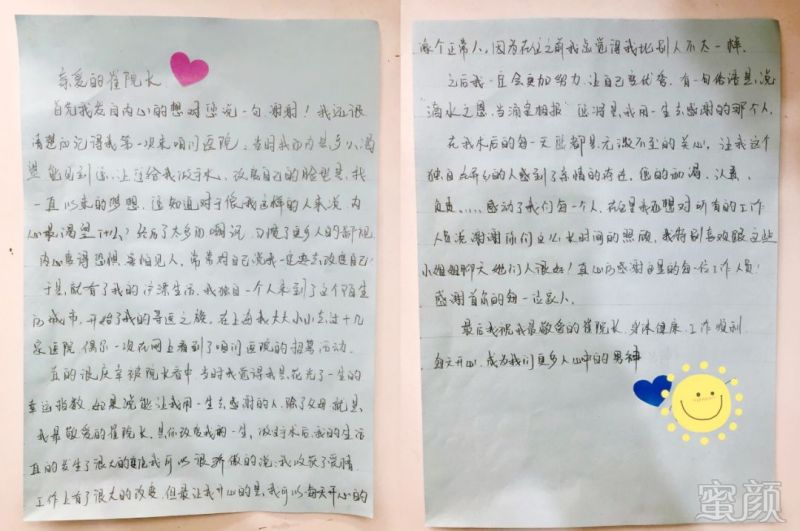 亲爱的崔院长
首先我发自内心的想对您说一句，谢谢！我还很
清楚的记得我第一次来咱们医院，当时我的内心是多么渴
望能见到您，让您给我做手术，改变自己的脸型是，我
一直以来的梦想。您知道对于像我这样的人来说，内
心最渴望什么？经历了太多的嘲讽，习惯了更多人的鄙视
内心变得恐惧，害怕见人，常常对自己说我一定要去改变自己！
于是，就有了我的沪漂生活，我独自一个人来到了这个陌生
的城市，开始了我的寻医之旅，在上海我大大小小去过十几
家医院，偶尔一次在网上看到了咱们医院的招募活动。
真的很庆幸被院长看中，当时我觉得我是花光了一生的
幸运指数，如果说能让我用一生去感谢的人，除了父母就是
我最敬爱的崔院长，是你改变我的一生，做好手术后，我的生活
真的发生了很大的我可以很骄傲的说：我收获了爱情
工作上有了很大的改变，但最让我开心的是，我可以每天开心的
像个正常人，因为在这之前我总觉得我比别人不太一样。
之后我一定会更加努力，让自己变优秀，有一句俗语是，说
“滴水之恩，当涌泉相报”您将是，我用一生去感谢的那个人，
在我术后的每一天您都是无微不至的关心，让我这个
独自在外的人感到了亲情的存在，您的细腻，认真，
负责......感动了我们每一个人，在这里我还想对所有的工作
人员说谢谢你们这么长时间的照顾，我特别喜欢跟这些
小姐姐聊天她们人很好！真心的感谢这里的每一位工作人员！
感谢首尔的每一位家人。
最后我祝我最敬爱的崔院长，身体健康，工作顺利
每天开心，成为我们更多人心中的男神
蜜颜